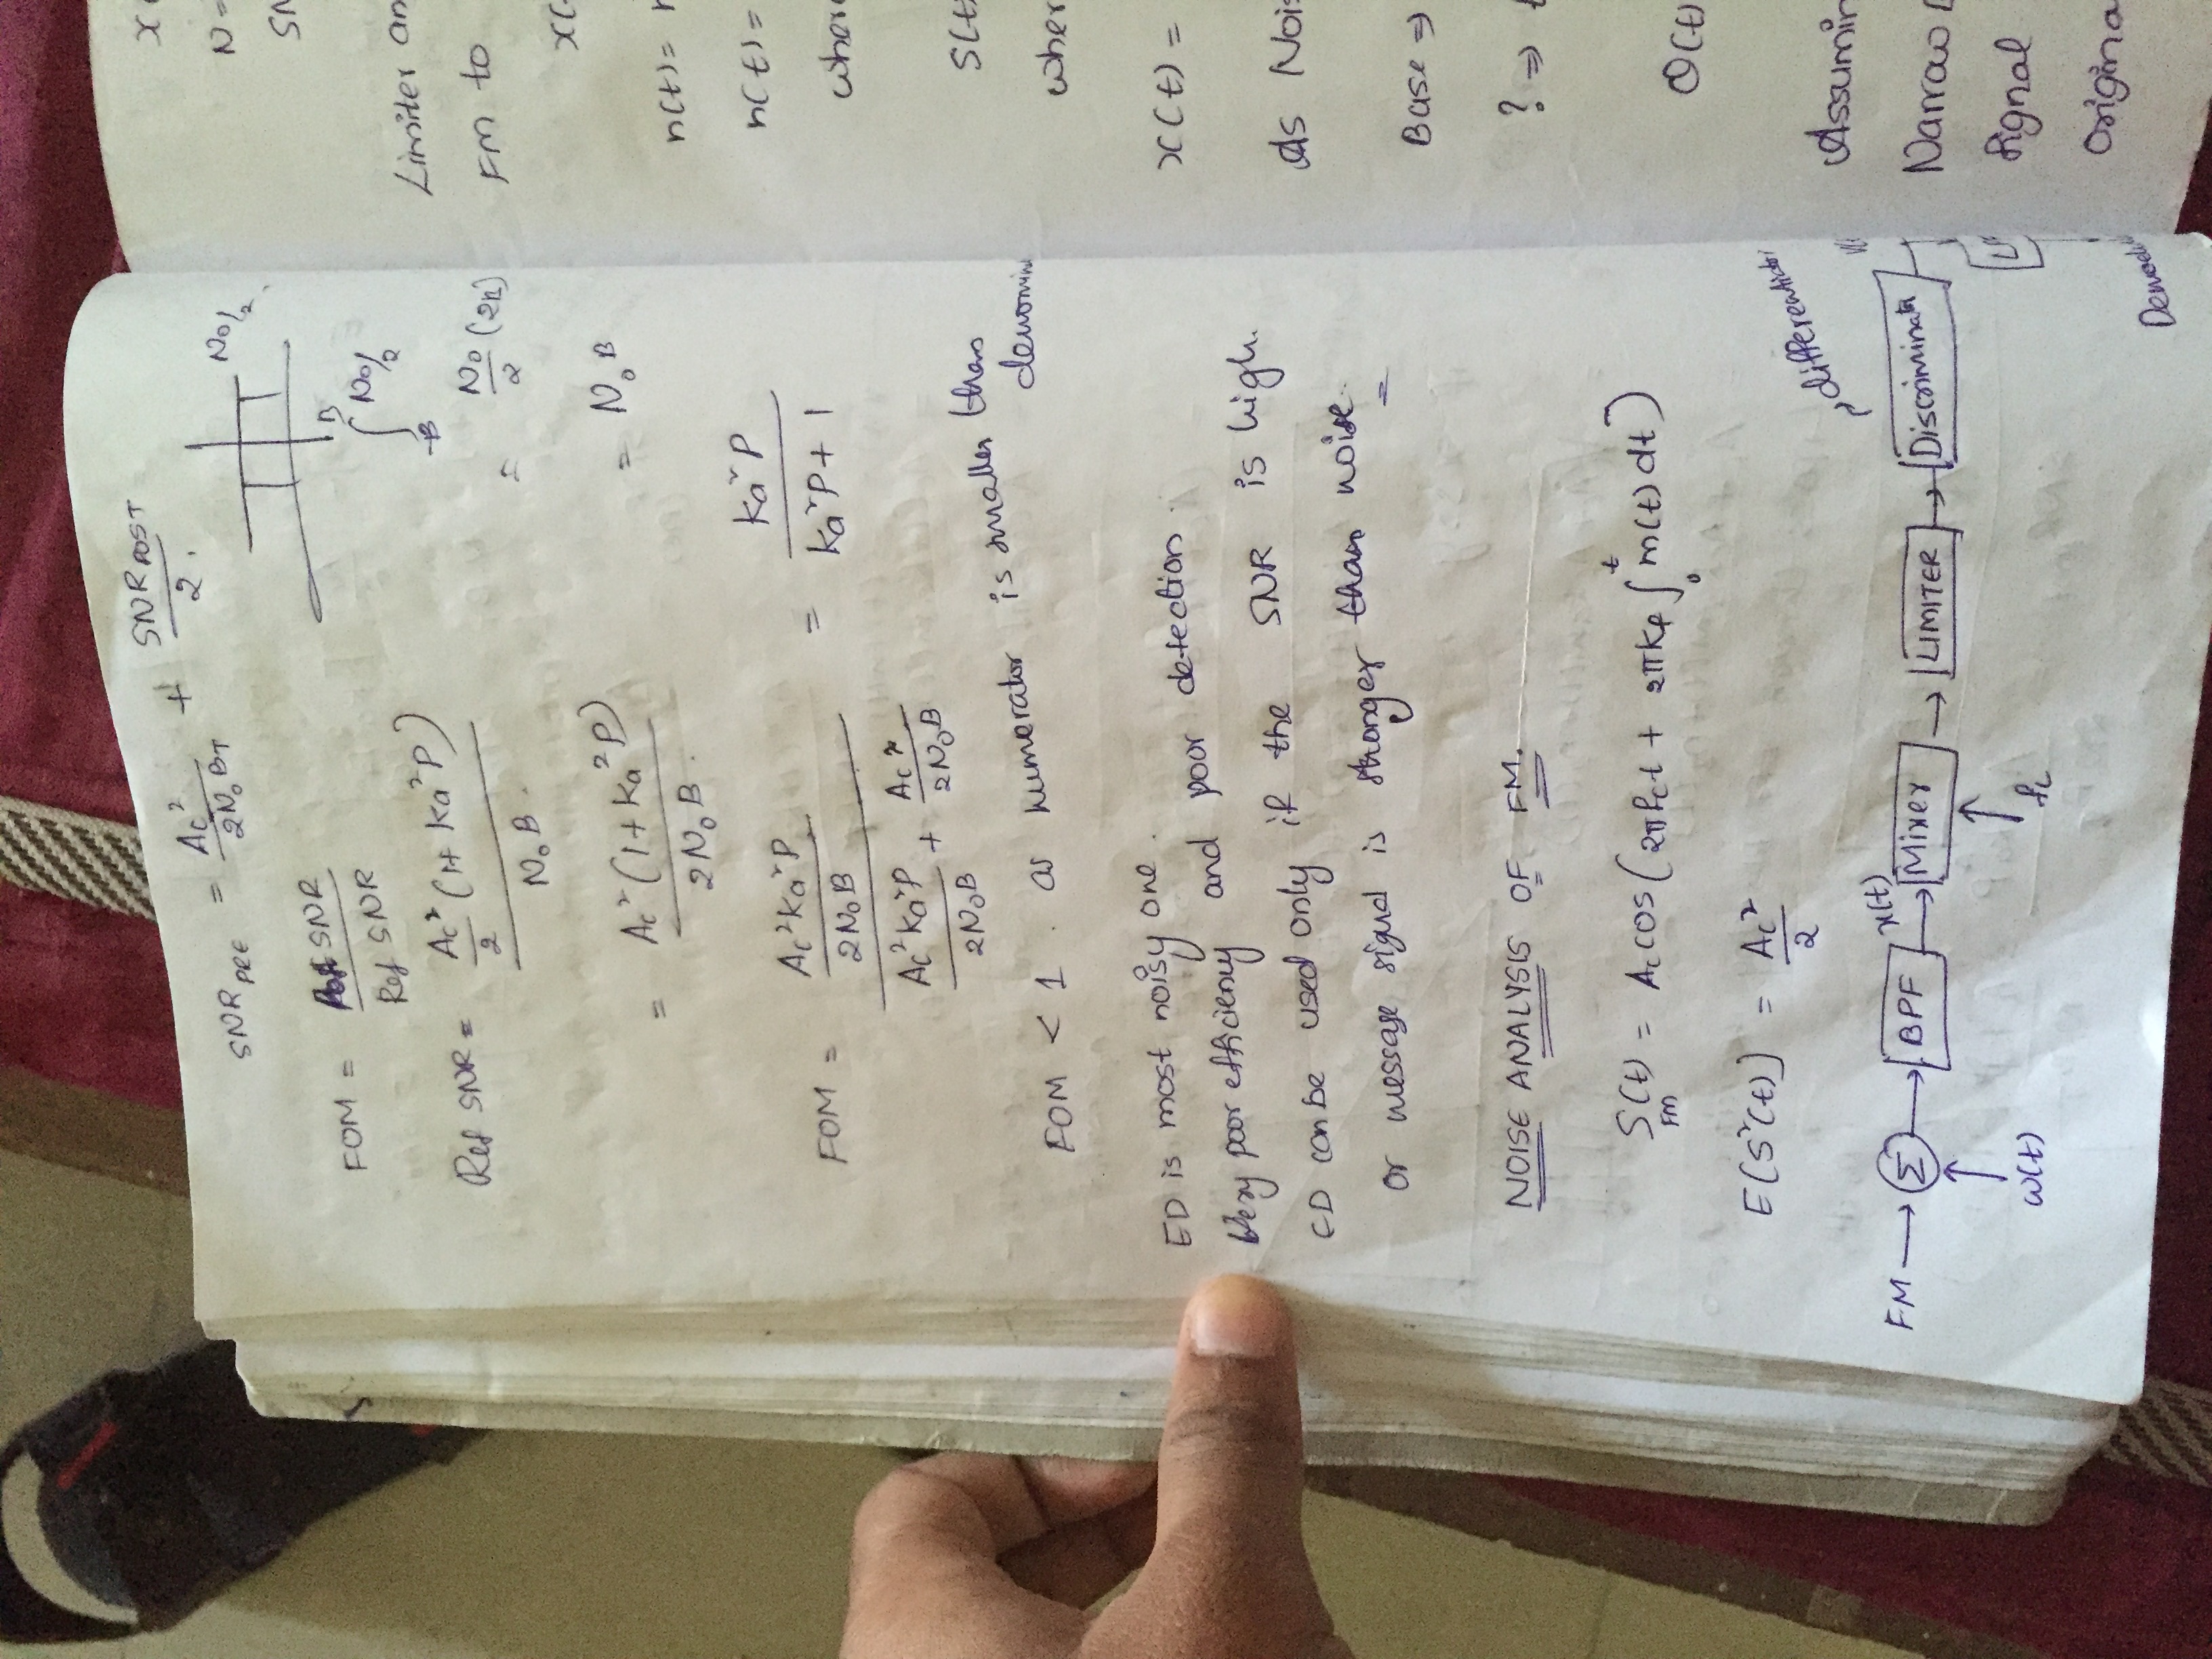 SNR PRE = Ac² / 2N₀BT + SNR POST / 2.
N0/2
FOM = Post SNR / Ref SNR
∫ N0/2
B
-B
Ref SNR = Ac²/2 (1+ Ka²P) / N₀B.
= N0/2 (2B)
= Ac² (1+Ka²P) / 2N₀B.
= N₀B
FOM = Ac²Ka²P / 2N₀B / Ac²Ka²P / 2N₀B + Ac² / 2N₀B = Ka²P / Ka²P + 1
FOM < 1 . as numerator is smaller than
denomin
ED is most noisy one.
Very poor efficiency and poor detection.
ED can be used only if the SNR is high.
or message signal is stronger than noise.
NOISE ANALYSIS OF FM.
S(t) FM = Ac cos (2πfct + 2πKf ∫₀ᵗ m(t) dt)
E[S²(t)] = Ac² / 2
differentiator
FM → Σ → BPF x(t) → Mixer → LIMITER → Discriminator
w(t)
fc
Demodul
x(
N =
SN
Limiter an
FM to
x(
n(t) =
n(t) =
where
S(t)
wher
x(t) =
As Nois
Base ⇒
? ⇒
Θ(t)
Assumin
Narrow
Signal
Origina